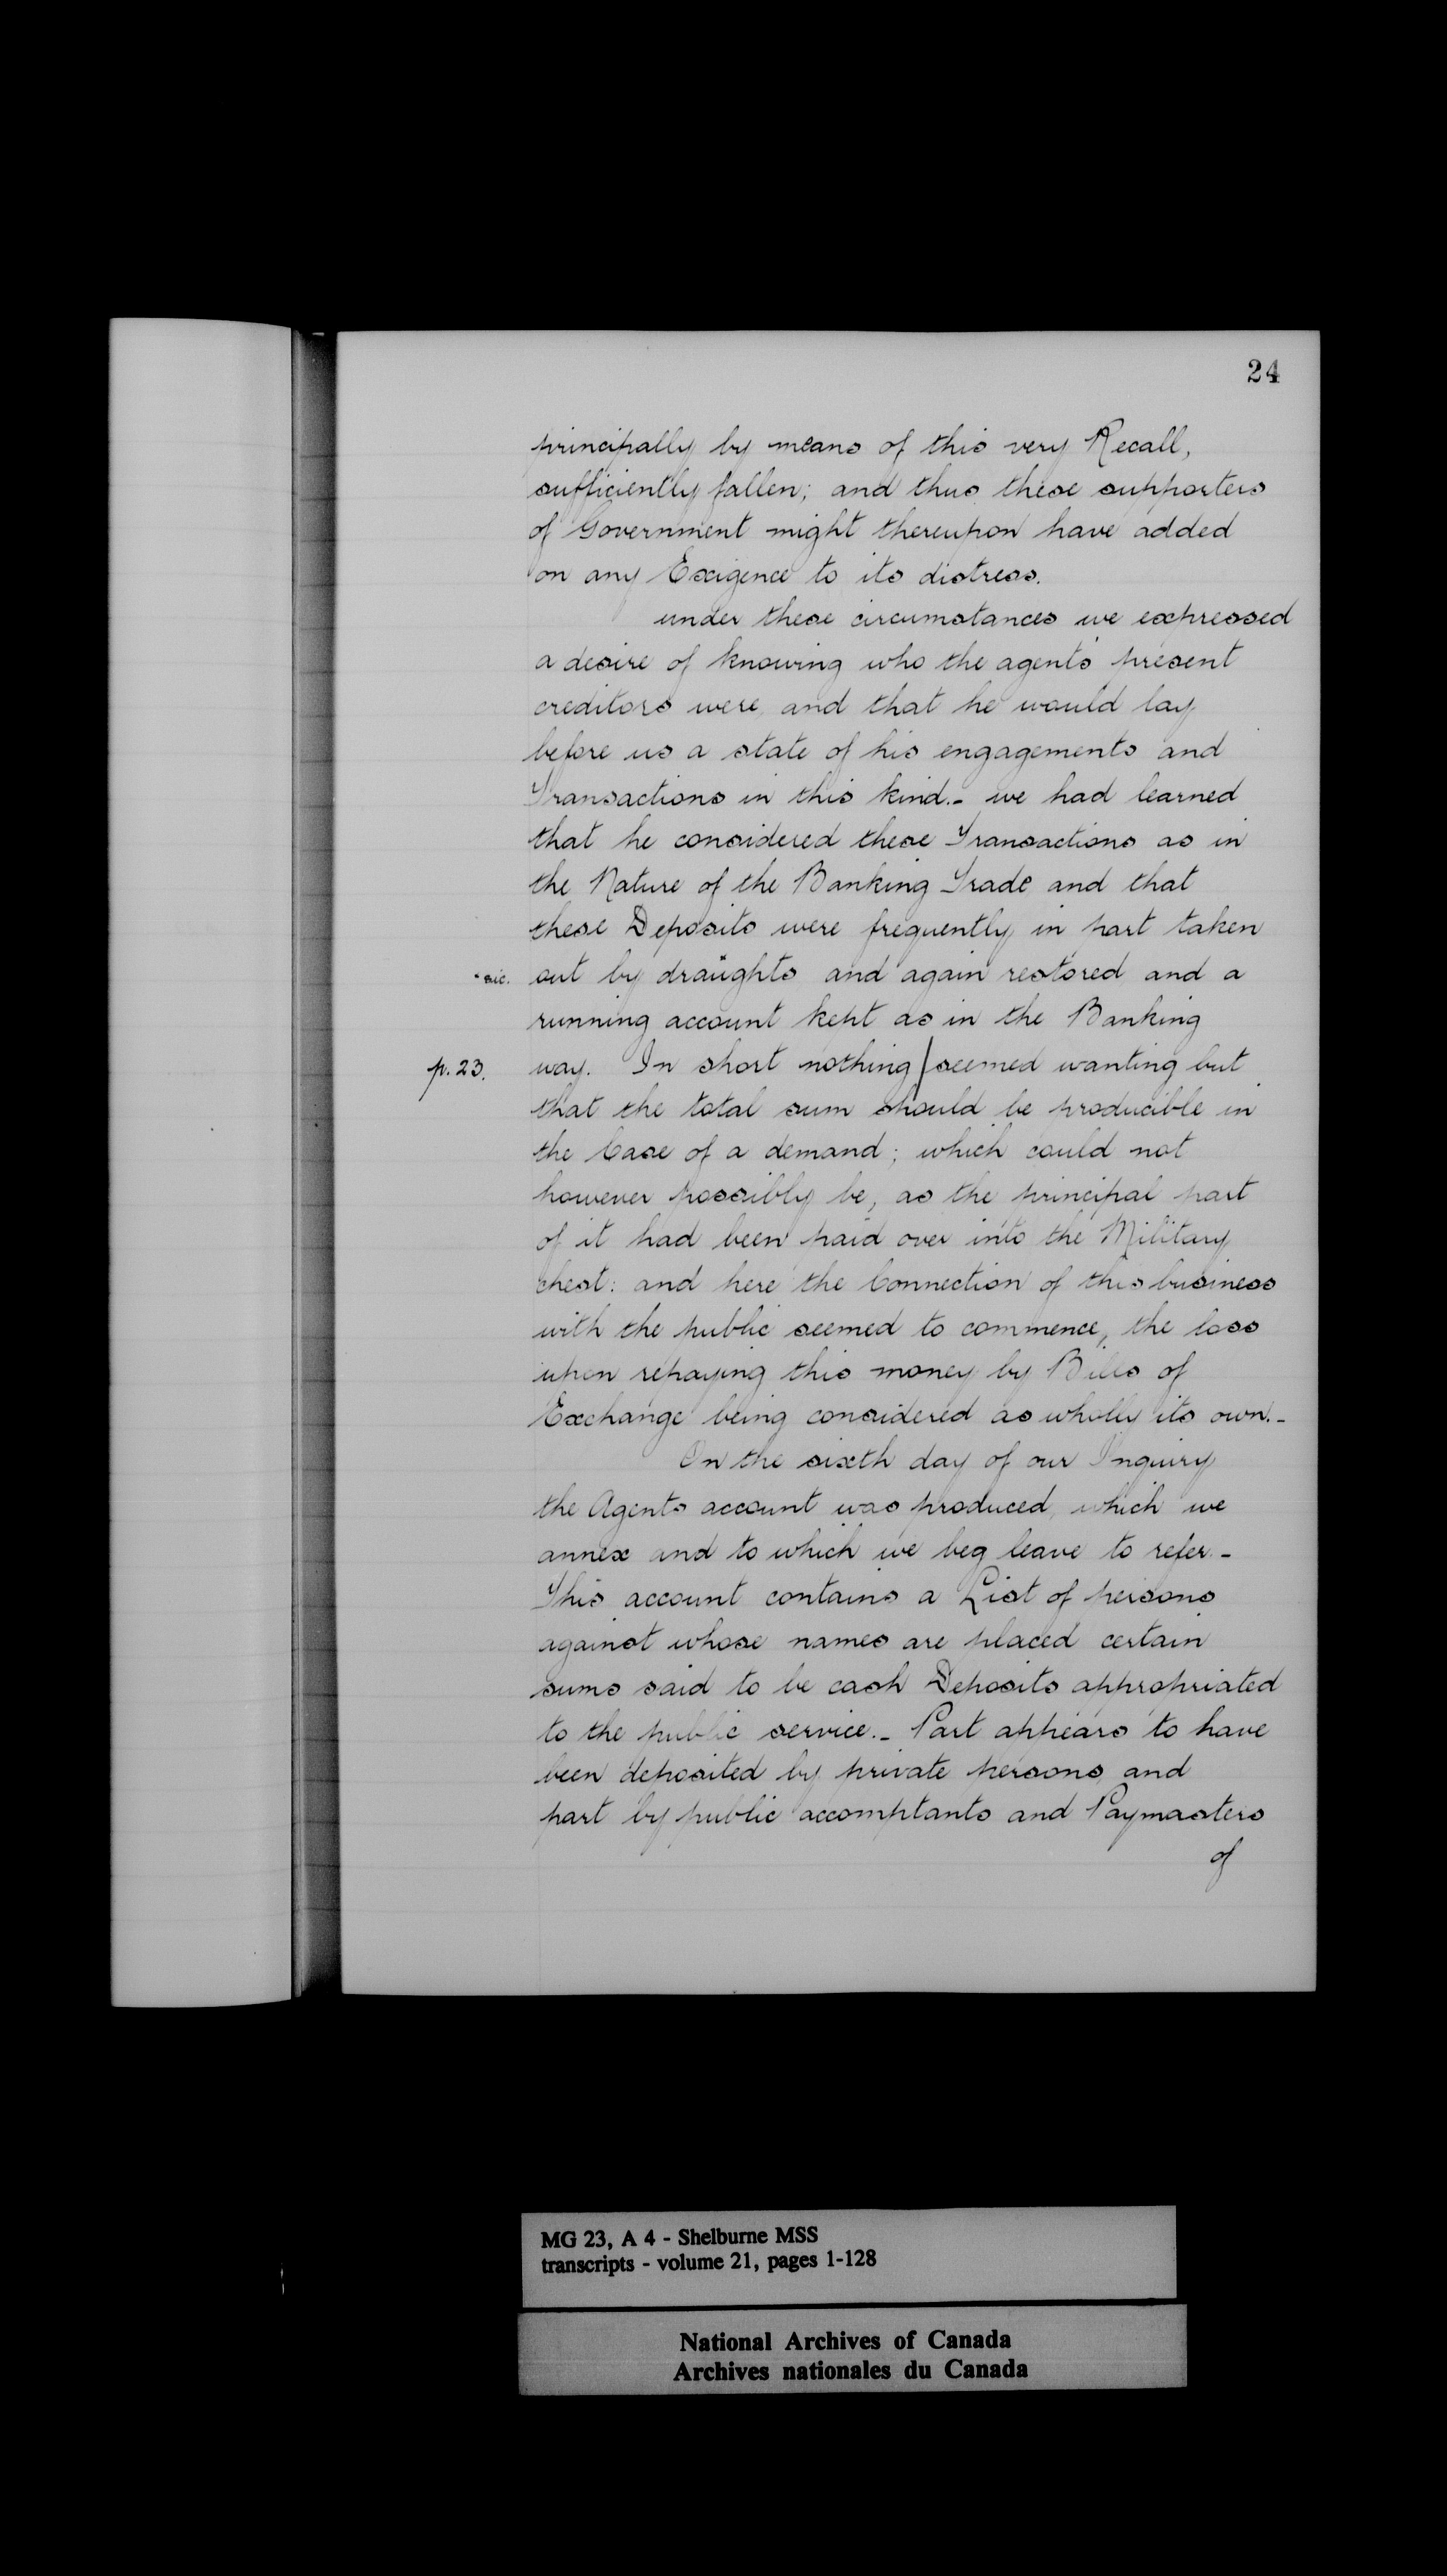 24
principally by means of this very Recall,
sufficiently fallen; and thus these supporters
of Government might thereupon have added
on any Exigence to its distress.
under these circumstances we expressed
a desire of knowing who the agents present
creditors were and that he would lay
before us a state of his engagements and
Transactions in this kind.- we had learned
that he considered these Transactions as in
the Nature of the Banking Trade and that
these Deposits were frequently in part taken
"sic. out by draughts and again restored and a
running account kept as in the Banking
p. 23. way. In short nothing | seemed wanting but
that the total sum should be producible in
the Case of a demand; which could not
however possibly be, as the principal part
of it had been paid over into the Military
chest: and here the Connection of this business
with the public seemed to commence, the loss
upon repaying this money by Bills of
Exchange being considered as wholly its own.-
On the sixth day of our Inquiry
the Agents account was produced, which we
annex and to which we beg leave to refer.-
This account contains a List of persons
against whose names are placed certain
sums said to be cash Deposits appropriated
to the public service.- Part appears to have
been deposited by private persons and
part by public accomptants and Paymasters
of
MG 23, A 4 - Shelburne MSS
transcripts - volume 21, pages 1-128
National Archives of Canada
Archives nationales du Canada